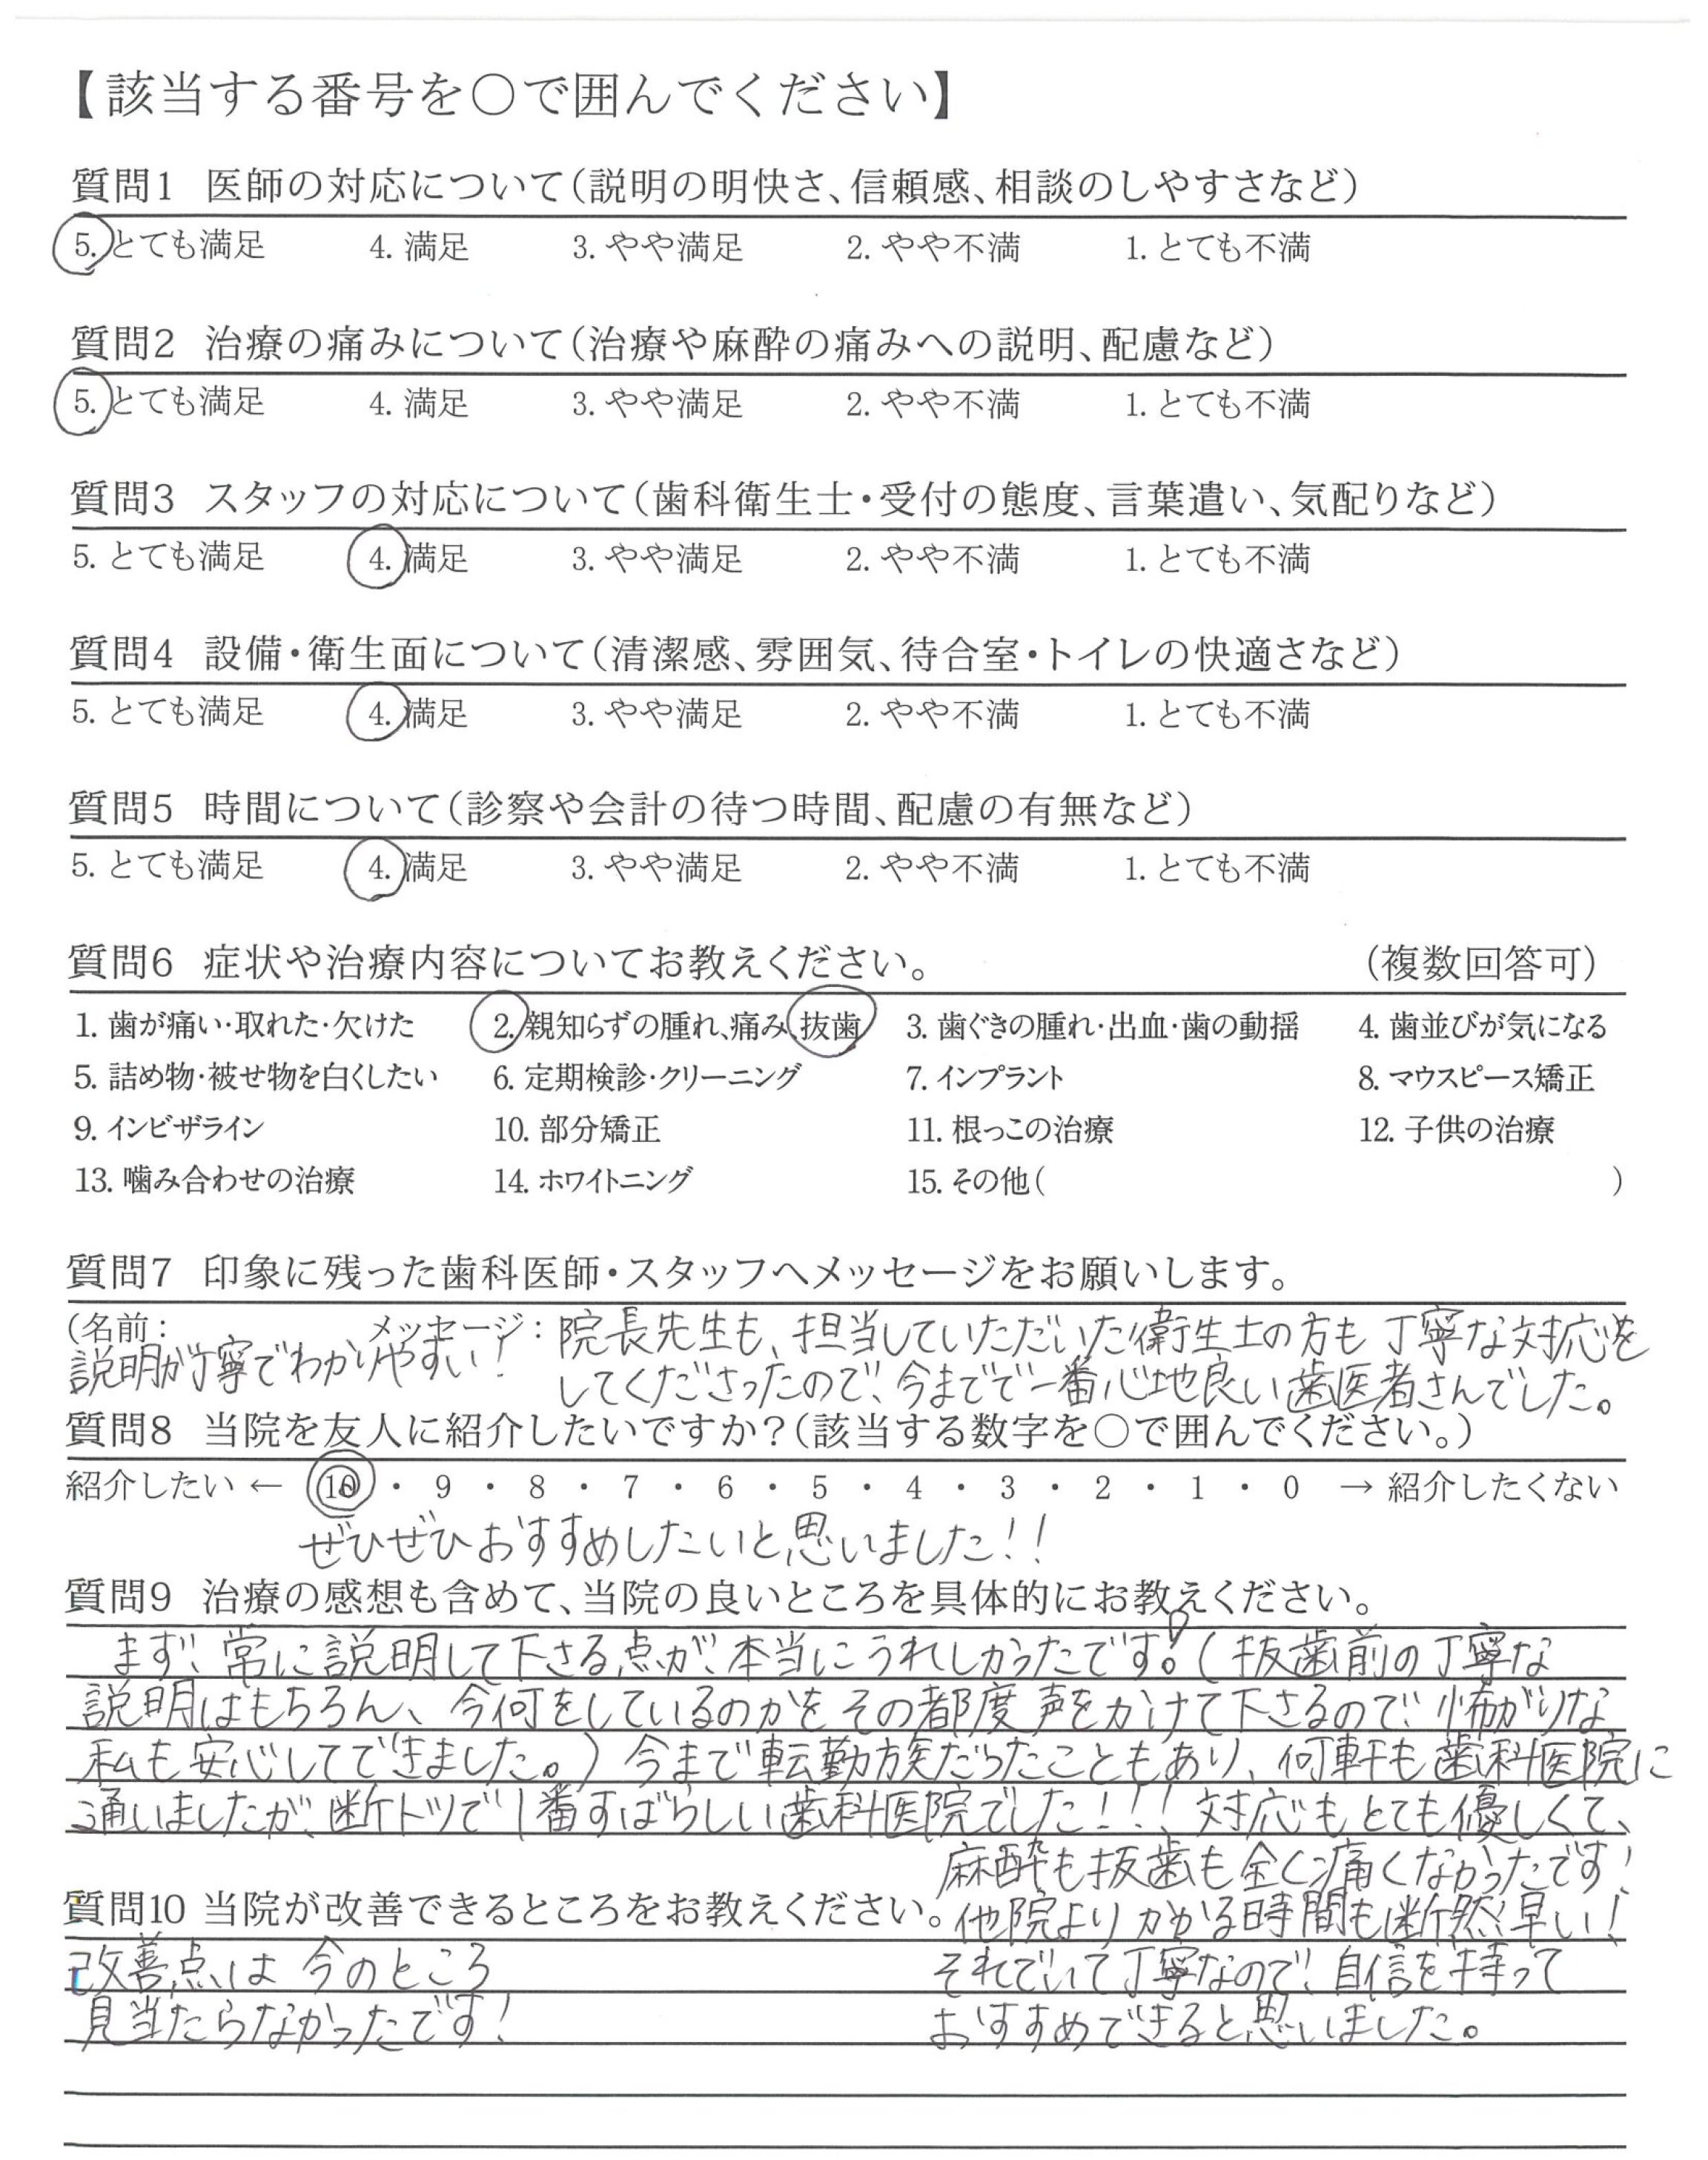 【該当する番号を○で囲んでください】
質問1 医師の対応について(説明の明快さ、信頼感、相談のしやすさなど)
5. とても満足 4. 満足 3. やや満足 2. やや不満 1. とても不満
質問2 治療の痛みについて(治療や麻酔の痛みへの説明、配慮など)
5. とても満足 4. 満足 3. やや満足 2. やや不満 1. とても不満
質問3 スタッフの対応について(歯科衛生士・受付の態度、言葉遣い、気配りなど)
5. とても満足 4. 満足 3. やや満足 2. やや不満 1. とても不満
質問4 設備・衛生面について(清潔感、雰囲気、待合室・トイレの快適さなど)
5. とても満足 4. 満足 3. やや満足 2. やや不満 1. とても不満
質問5 時間について(診察や会計の待つ時間、配慮の有無など)
5. とても満足 4. 満足 3. やや満足 2. やや不満 1. とても不満
質問6 症状や治療内容についてお教えください。 (複数回答可)
1. 歯が痛い・取れた・欠けた 2. 親知らずの腫れ、痛み、抜歯 3. 歯ぐきの腫れ・出血・歯の動揺 4. 歯並びが気になる
5. 詰め物・被せ物を白くしたい 6. 定期検診・クリーニング 7. インプラント 8. マウスピース矯正
9. インビザライン 10. 部分矯正 11. 根っこの治療 12. 子供の治療
13. 噛み合わせの治療 14. ホワイトニング 15. その他( )
質問7 印象に残った歯科医師・スタッフへメッセージをお願いします。
(名前: メッセージ: 院長先生も、担当していただいた衛生士の方も丁寧な対応を
説明が丁寧でわかりやすい! してくださったので、今までで一番心地良い歯医者さんでした。
質問8 当院を友人に紹介したいですか?(該当する数字を○で囲んでください。)
紹介したい ← 10 ・ 9 ・ 8 ・ 7 ・ 6 ・ 5 ・ 4 ・ 3 ・ 2 ・ 1 ・ 0 → 紹介したくない
ぜひぜひおすすめしたいと思いました!!
質問9 治療の感想も含めて、当院の良いところを具体的にお教えください。
まず、常に説明して下さる点が、本当にうれしかったです!。(抜歯前の丁寧な
説明はもちろん、今何をしているのかをその都度声をかけて下さるので、怖がりな
私も安心してできました。)今まで転勤族だったこともあり、何軒も歯科医院に
通いましたが、断トツで1番すばらしい歯科医院でした!!! 対応もとても優しくて、
麻酔も抜歯も全く痛くなかったです!
質問10 当院が改善できるところをお教えください。
他院よりかかる時間も断然早い!
それでいて丁寧なので、自信を持って
おすすめできると思いました。
改善点は今のところ
見当たらなかったです!